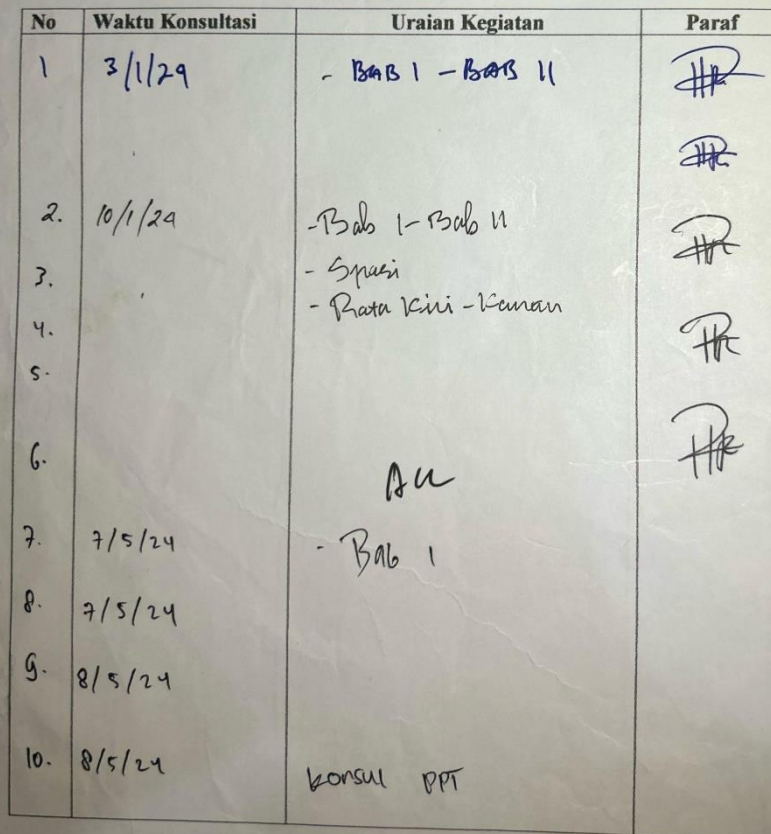 No Waktu Konsultasi Uraian Kegiatan Paraf
1 3/1/24 - BAB I - BAB II
2. 10/1/24 - Bab I - Bab II
3. - Spasi
- Rata Kiri - Kanan
4.
5.
6. Acc
7. 7/5/24 - Bab I
8. 7/5/24
9. 8/5/24
10. 8/5/24 konsul PPT